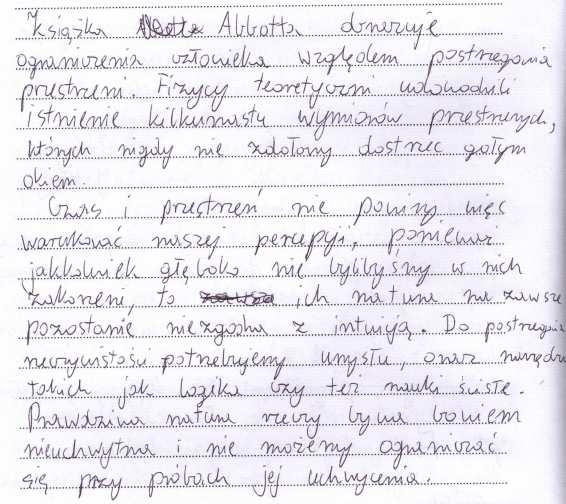 Książka Abbotta demonstruje
ograniczenia człowieka względem postrzegania
przestrzeni. Fizycy teoretyczni udowodnili
istnienie kilkunastu wymiarów przestrzennych,
których nigdy nie zdołamy dostrzec gołym
okiem.
Czas i przestrzeń nie powinny więc
warunkować naszej percepcji, ponieważ
jakkolwiek głęboko nie bylibyśmy w nich
zakorzenieni, to ich natura na zawsze
pozostanie niezgodna z intuicją. Do postrzegania
rzeczywistości potrzebujemy umysłu, oraz narzędzi
takich jak logika czy też nauki ścisłe.
Prawdziwa natura rzeczy bywa bowiem
nieuchwytna i nie możemy ograniczać
się przy próbach jej uchwycenia.